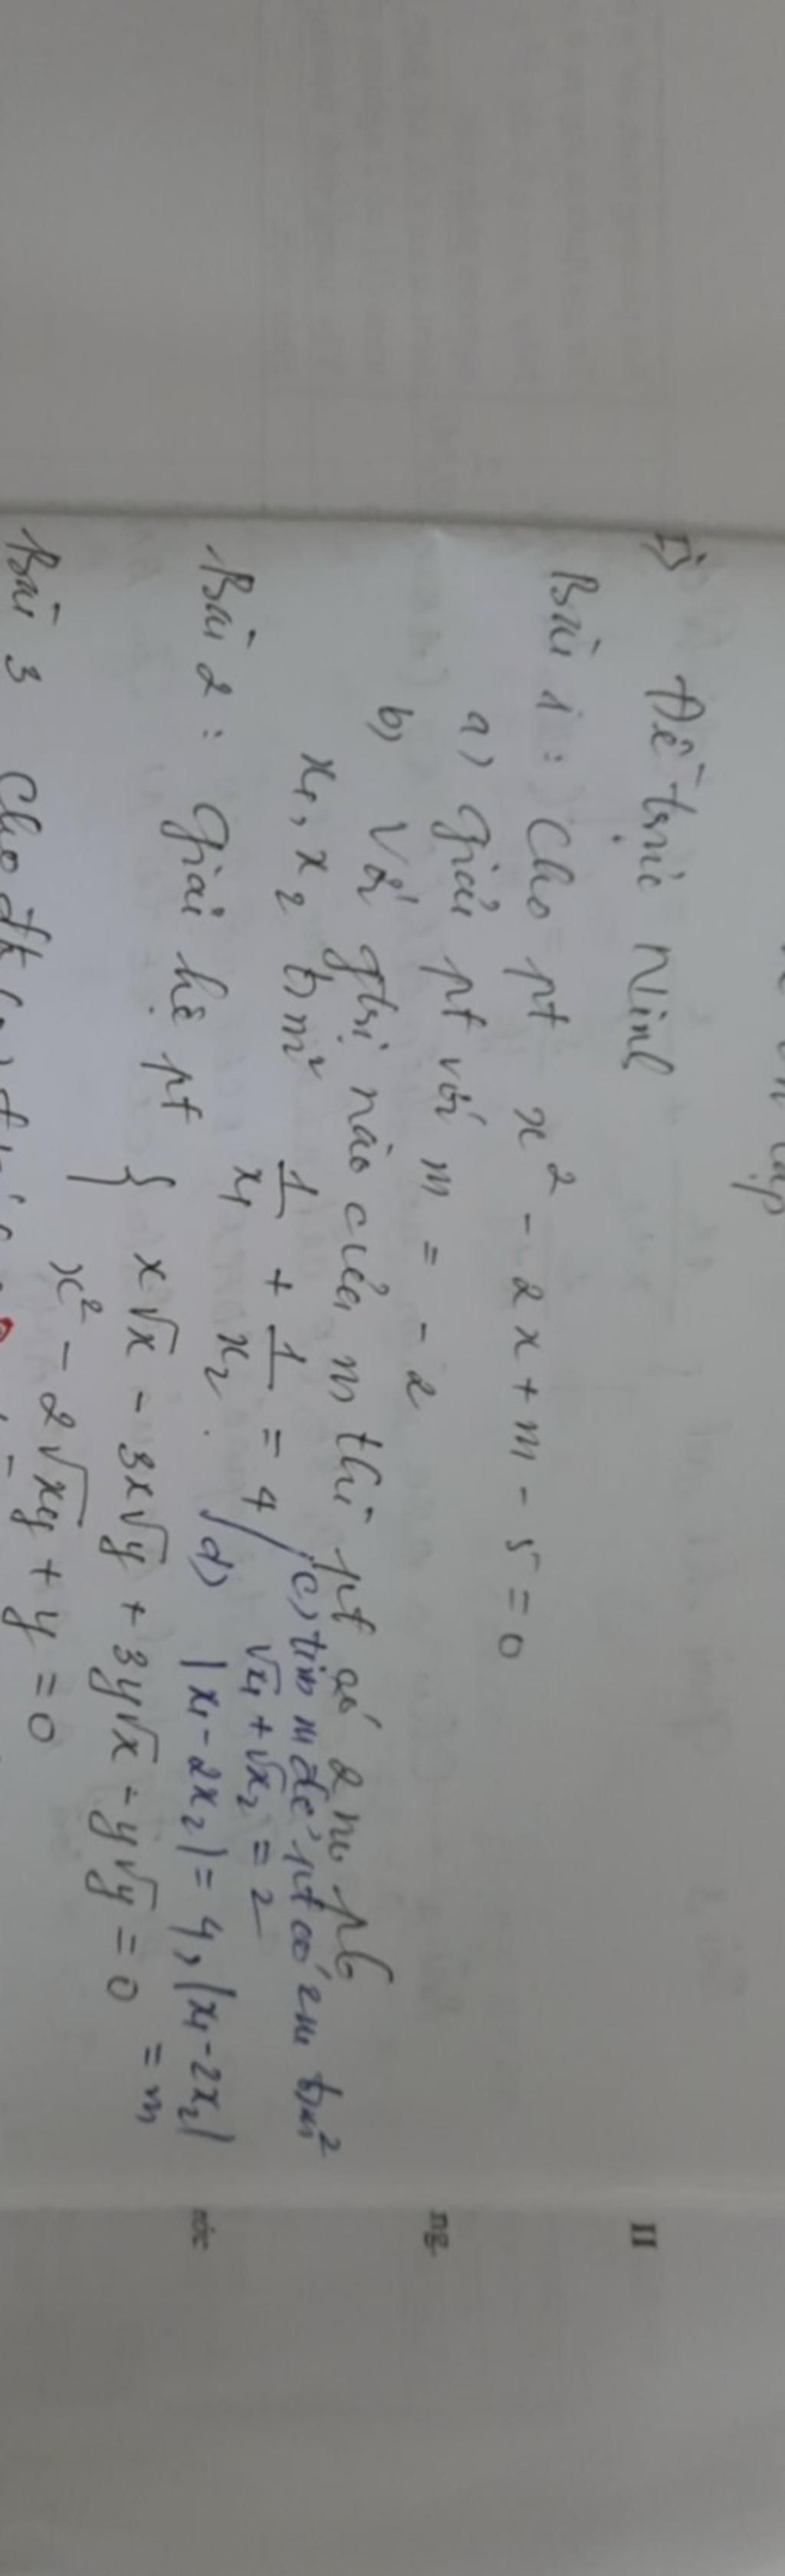 I) Đề trực Ninh
Bài 1: Cho pt x² - 2x + m - 5 = 0
a) Giải pt với m = -2
b) Với gtrị nào của m thì pt có 2 no pb
x₁, x₂ t/m² 1/x₁ + 1/x₂ = 4
c) tìm m để pt có 2no t/m²
√x₁ + √x₂ = 2
d) |x₁ - 2x₂| = 4, |x₁ - 2x₂| = m
Bài 2: Giải hệ pt { x√x - 3x√y + 3y√x - y√y = 0
x² - 2√xy + y = 0
Bài 3 Cho
II
ng